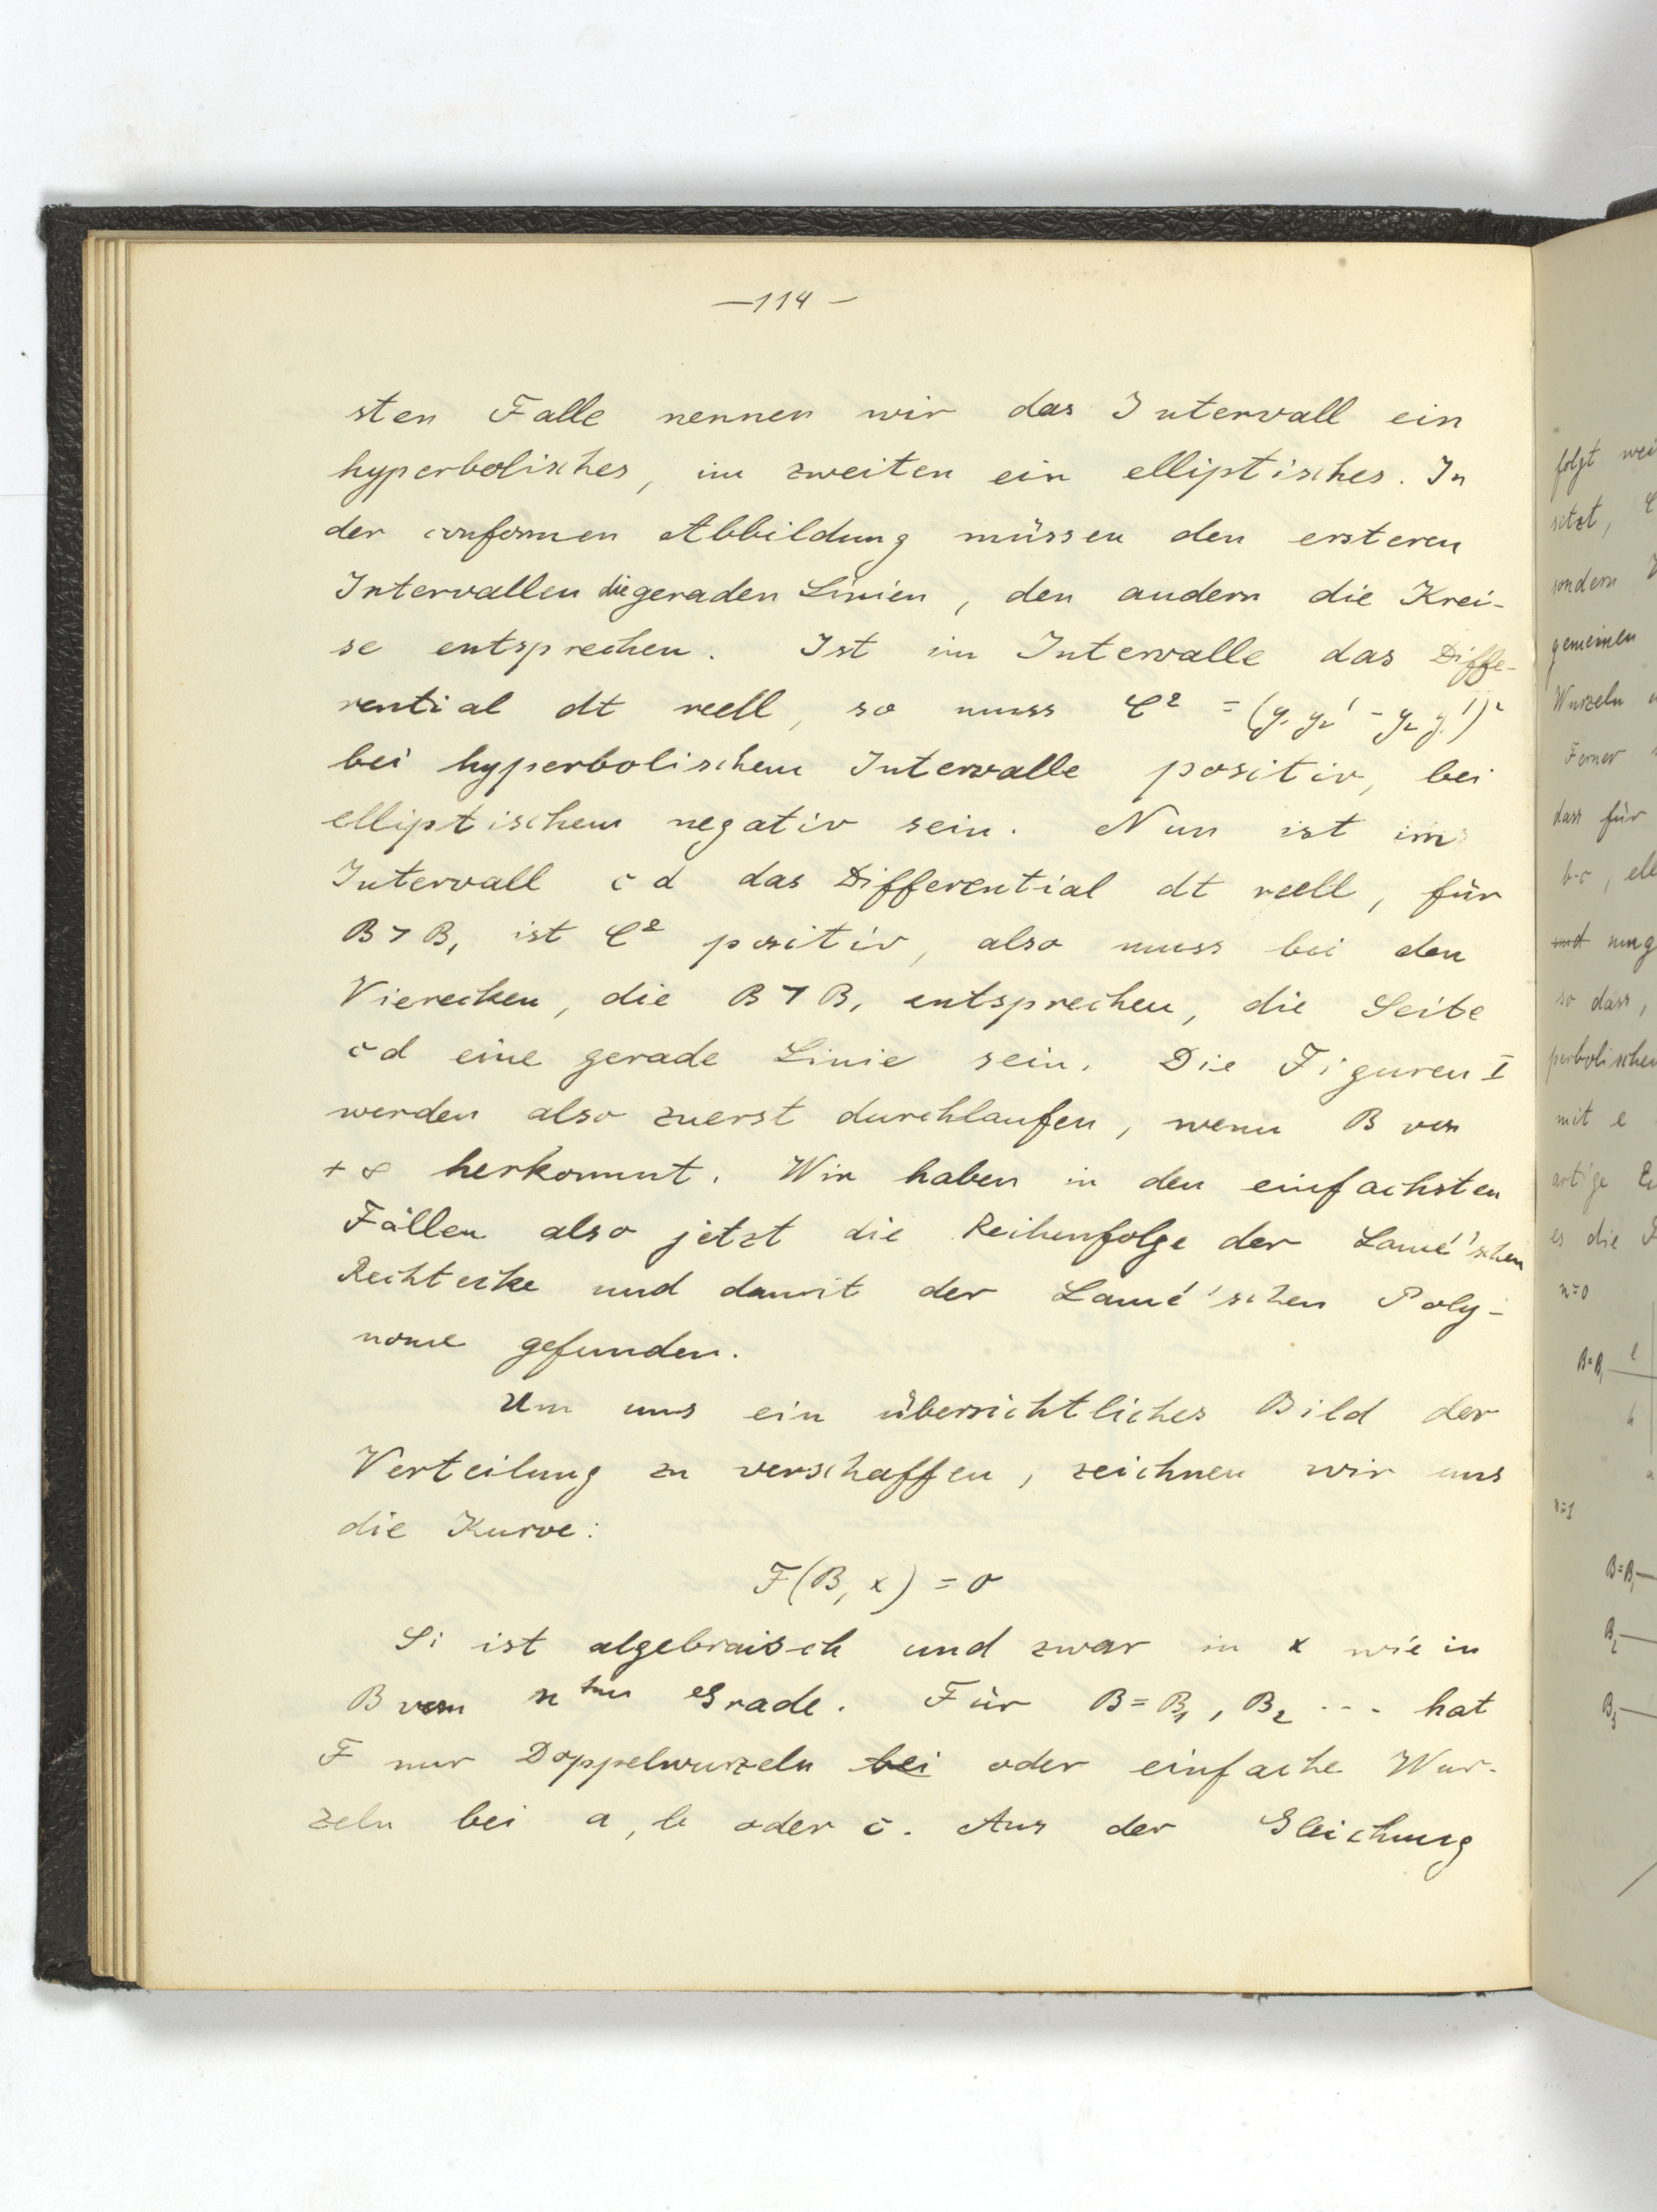 —114—
sten Falle nennen wir das Intervall ein
hyperbolisches, im zweiten ein elliptisches. In
der conformen Abbildung müssen den ersteren
Intervallen die geraden Linien, den andern die Krei-
se entsprechen. Ist im Intervalle das Diffe-
rential dt reell, so muss C² = (y₁ y₂' - y₂ y₁')²
bei hyperbolischem Intervalle positiv, bei
elliptischem negativ sein. Nun ist im
Intervall c d das Differential dt reell, für
B > B₁ ist C² positiv, also muss bei den
Vierecken, die B > B₁ entsprechen, die Seite
cd eine gerade Linie sein. Die Figuren I
werden also zuerst durchlaufen, wenn B von
+ ∞ herkommt. Wir haben in den einfachsten
Fällen also jetzt die Reihenfolge der Lamé'schen
Rechtecke und damit der Lamé'schen Poly-
nome gefunden.
Um uns ein übersichtliches Bild der
Verteilung zu verschaffen, zeichnen wir uns
die Kurve:
F(B, x) = 0
Si ist algebraisch und zwar in x wie in
B vom nten Grade. Für B = B₁, B₂ --- hat
F nur Doppelwurzeln bei oder einfache Wur-
zeln bei a, b oder c. Aus der Gleichung
folgt wei
sitzt,
sondern
gemeinen
Wurzeln
Ferner
dass für
b-c, ell
und ung
so dass,
perbolischen
mit e
artige
es die
n=0
B=B₁ e
n=1
B=B₁
B₂
B₃